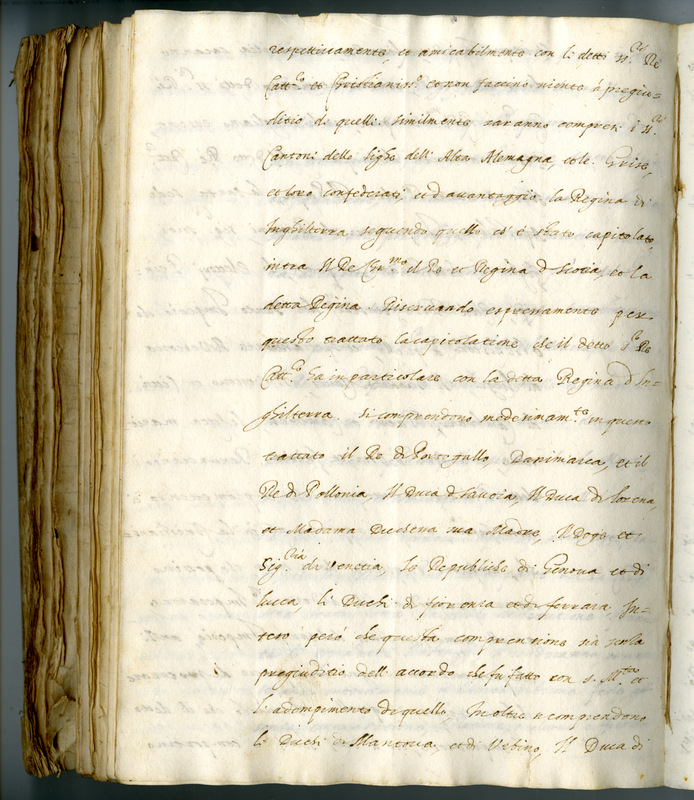 respettivamente, et amicabilmente con li detti SS.ri Re
Catt.co et Christianiss.o et non faccino niente à pregiu-
ditio di quelli. similmente saranno compresi i SS.ri
Cantoni delle lighe dell' Alta Alemagna, et le Grise,
et loro confederati, et d'avantaggio la Regina di
Inghilterra seguendo quello ch'è stato capitolato,
intra Il Re Chr.mo il Re et Regina di Scotia, et la
detta Regina. Riservando espressamente per
questo trattato la capitolatione che il detto S.r Re
Catt.co ha in particolare con la detta Regina d'In-
ghilterra. si comprendono medesimam.te in questo
trattato il Re di Portogallo, Danimarca, et il
Re di Pollonia, Il Duca di Savoia, Il Duca di lorena,
et Madama Duchessa sua Madre, Il Doge et
Sig.ria di Venetia, le Republiche di Genova et di
lucca, li Duchi di fiorenza et di ferrara, In-
teso però che questa comprensione sia senza
pregiuditio dell' accordo che fu fatto con S. M.tà et
l'adempimento di quello, In oltre si comprendono
li Duchi di Mantova, et di Urbino, Il Duca di